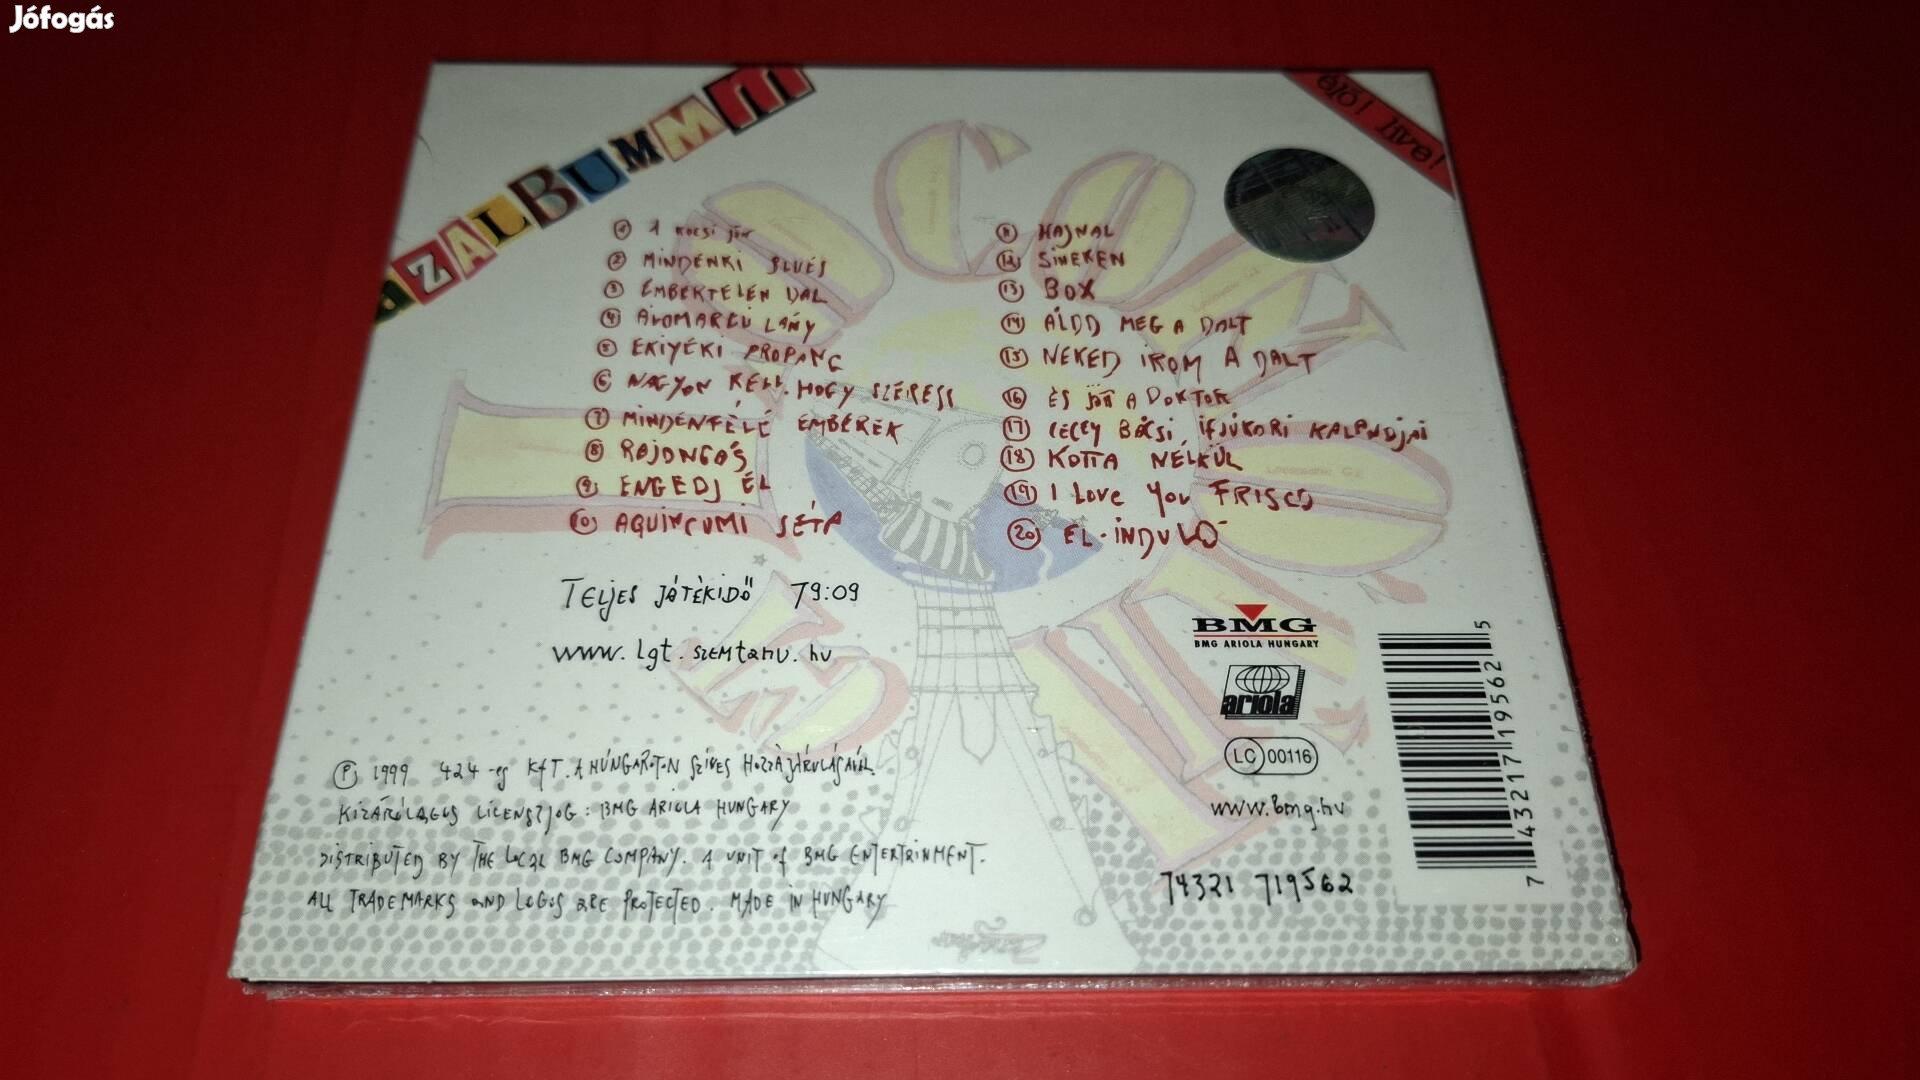 Jófogás
aZALBUMMM
élő! live!
① A kocsi jön
② MINDENKI BLUES
③ EMBERTELEN DAL
④ ÁLOMARCÚ LÁNY
⑤ EKIYÉKI PROPANG
⑥ NAGYON KELL, HOGY SZERESS
⑦ MINDENFÉLE EMBEREK
⑧ RAJONGÁS
⑨ ENGEDJ ÉL
⑩ AQUINCUMI SÉTA
⑪ HAJNAL
⑫ SINEKEN
⑬ BOX
⑭ ÁLDD MEG A DALT
⑮ NEKED IROM A DALT
⑯ ÉS JÖTT A DOKTOR
⑰ CECEY BÁCSI IFJÚKORI KALANDJAI
⑱ KOTTA NÉLKÜL
⑲ I Love You FRISCO
⑳ EL-INDULÓ
TELJES JÁTÉKIDŐ 79:09
www.lgt.szemtanu.hu
Ⓟ 1999 424-es KFT. A HUNGAROTON SZIVES HOZZÁJÁRULÁSÁVAL
KIZÁRÓLAGOS LICENSZJOG: BMG ARIOLA HUNGARY
DISTRIBUTED BY THE LOCAL BMG COMPANY. A UNIT of BMG ENTERTAINMENT.
ALL TRADEMARKS AND LOGOS ARE PROTECTED. MADE IN HUNGARY
BMG
BMG ARIOLA HUNGARY
ariola
LC 00116
www.bmg.hu
74321 719562
7 43217 19562 5